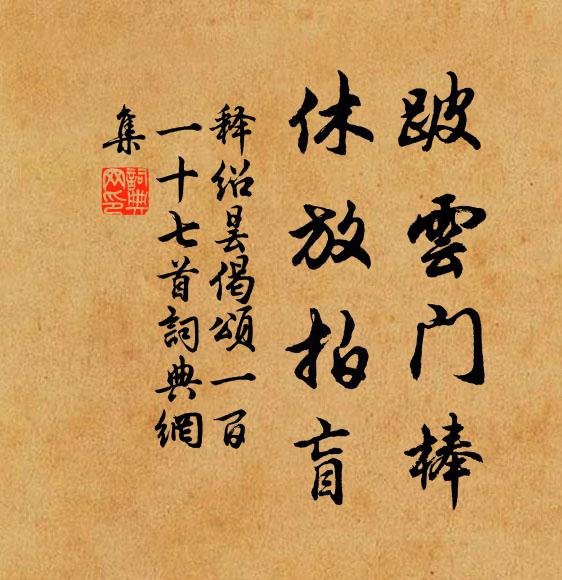 跛雲门棒
休放拍盲
释绍昙偈頌一百
一十七首詞典網
集
詞典
网印